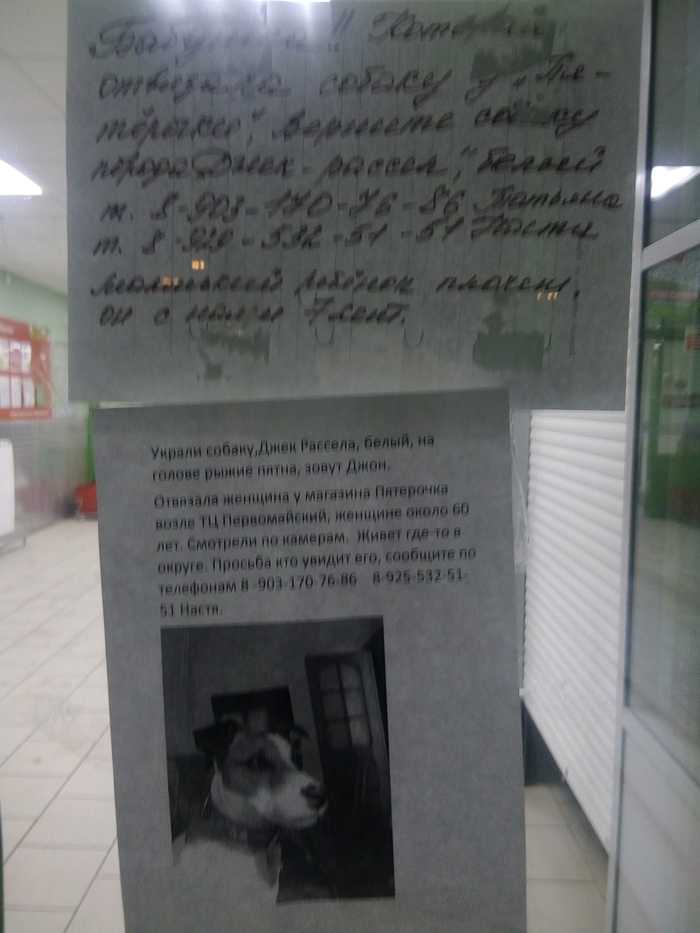 Бабушка!! Которая
отвязала собаку у "Пя-
тёрочки", верните собаку
порода Джек-рассел", белый
т. 8-903-170-76-86 Татьяна
т. 8-929-532-51-51 Настя
маленький ребёнок плачет,
он с нами 7 лет.
Украли собаку,Джек Рассела, белый, на
голове рыжие пятна, зовут Джон.
Отвязала женщина у магазина Пятерочка
возле ТЦ Первомайский, женщине около 60
лет. Смотрели по камерам. Живет где-то в
округе. Просьба кто увидит его, сообщите по
телефонам 8 -903-170-76-86 8-925-532-51-
51 Настя.